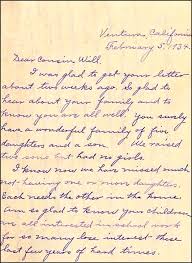 Ventura, California
February 5, 1934.
Dear Cousin Will,
I was glad to get your letter
about two weeks ago. So glad to
hear about your family and to
know you are all well. You surely
have a wonderful family of five
daughters and a son. We raised
two sons but had no girls.
I know now we have missed much
not having one or more daughters.
Each needs the other in the home.
Am so glad to know your children
are all interested in school work
for so many lose interest these
last few years of hard times.